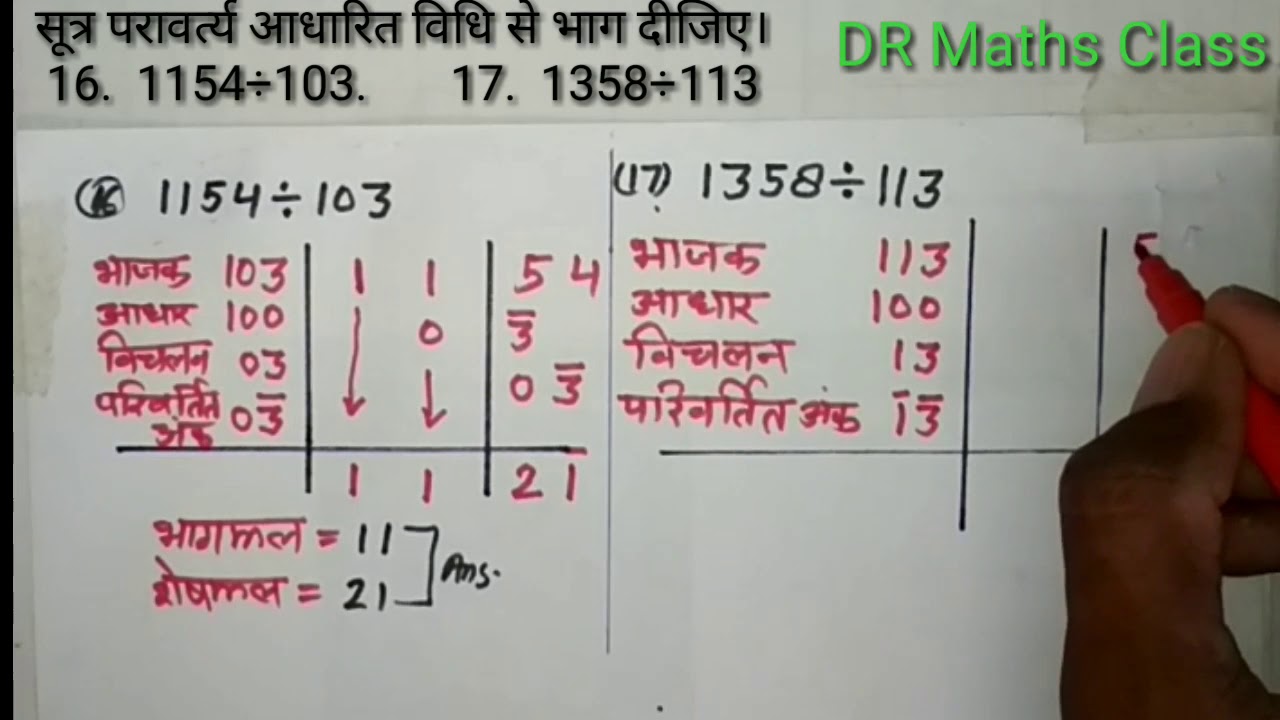 सूत्र परावर्त्य आधारित विधि से भाग दीजिए।
DR Maths Class
16. 1154÷103. 17. 1358÷113
(16) 1154÷103
भाजक 103 1 1 5 4
आधार 100 0 3̅
विचलन 03
परिवर्तित अंक 03̅ 0 3̅
1 1 2 1̅
भागफल = 11
शेषफल = 21
Ans.
(17) 1358÷113
भाजक 113 5
आधार 100
विचलन 13
परिवर्तित अंक 1̅3̅